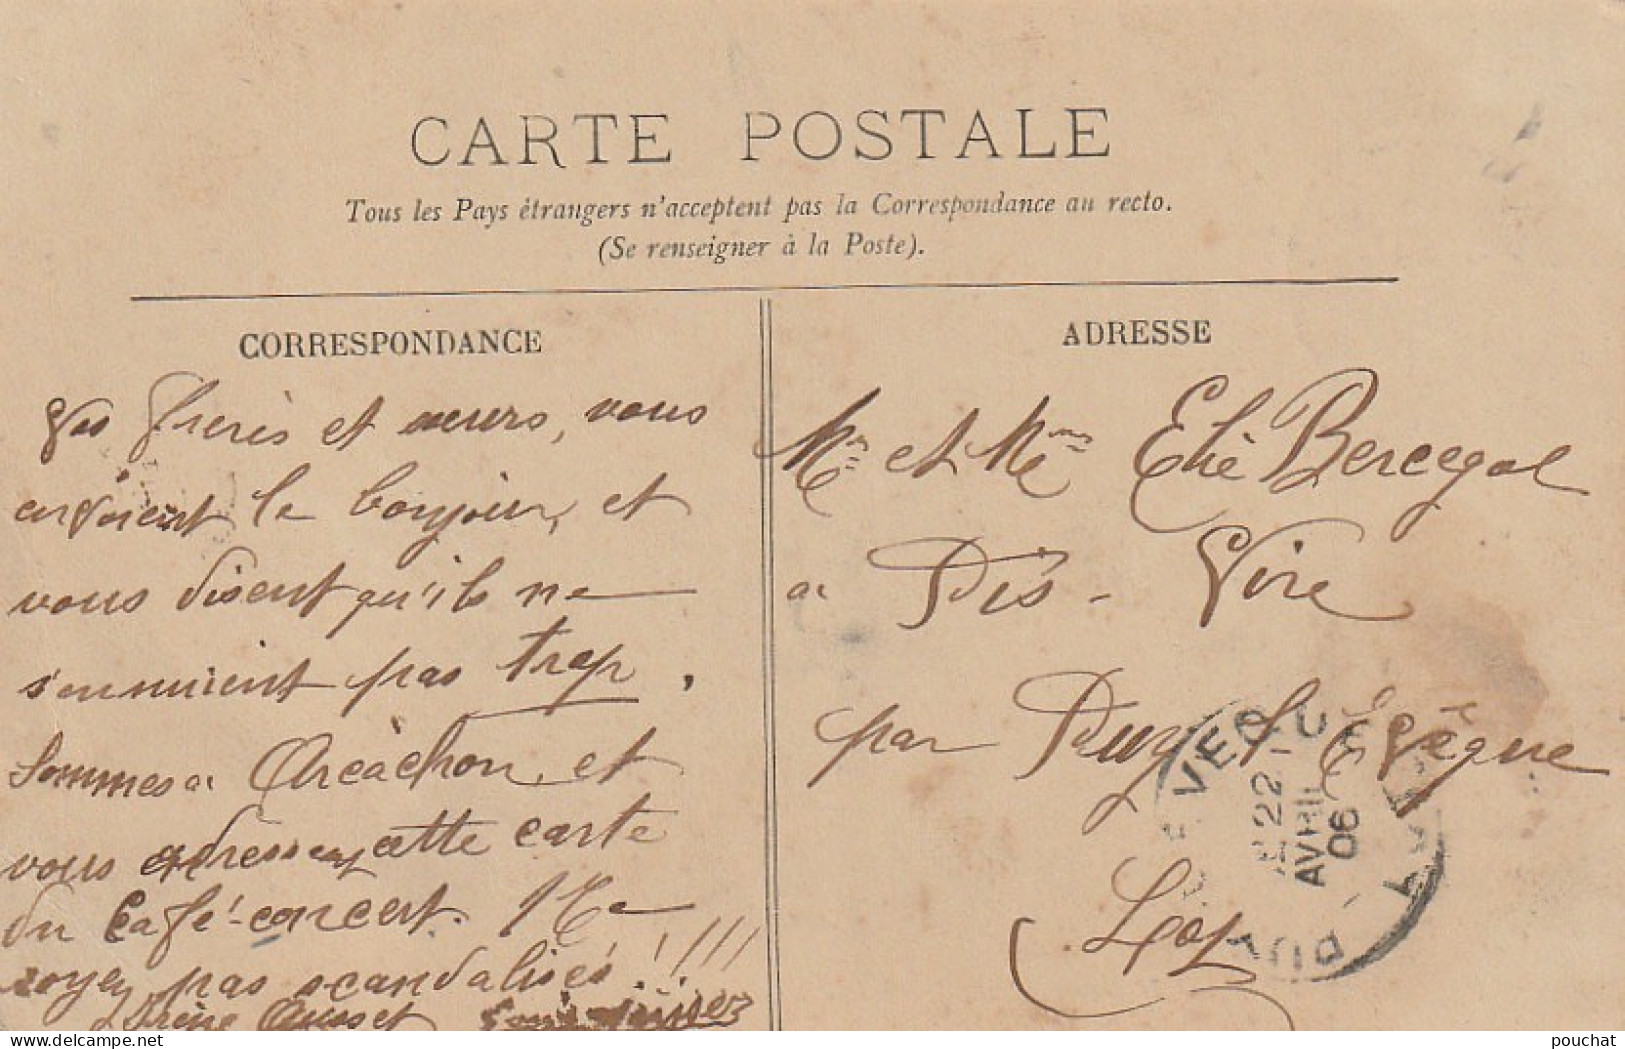 CARTE POSTALE
Tous les Pays étrangers n'acceptent pas la Correspondance au recto.
(Se renseigner à la Poste).
CORRESPONDANCE
Vos frères et sœurs, vous
envoient le bonjour, et
vous disent qu'ils ne
s'ennuient pas trop,
Sommes a Arcachon, et
vous adressent cette carte
du Café-concert. Ne
soyez pas scandalisés!!!!
Irène Ausset
ADRESSE
Mr et Mme Elie Bercegol
a Dis-Vire
par Puy l'Evêque
Lot
22
AVRIL
06
delcampe.net
pouchat